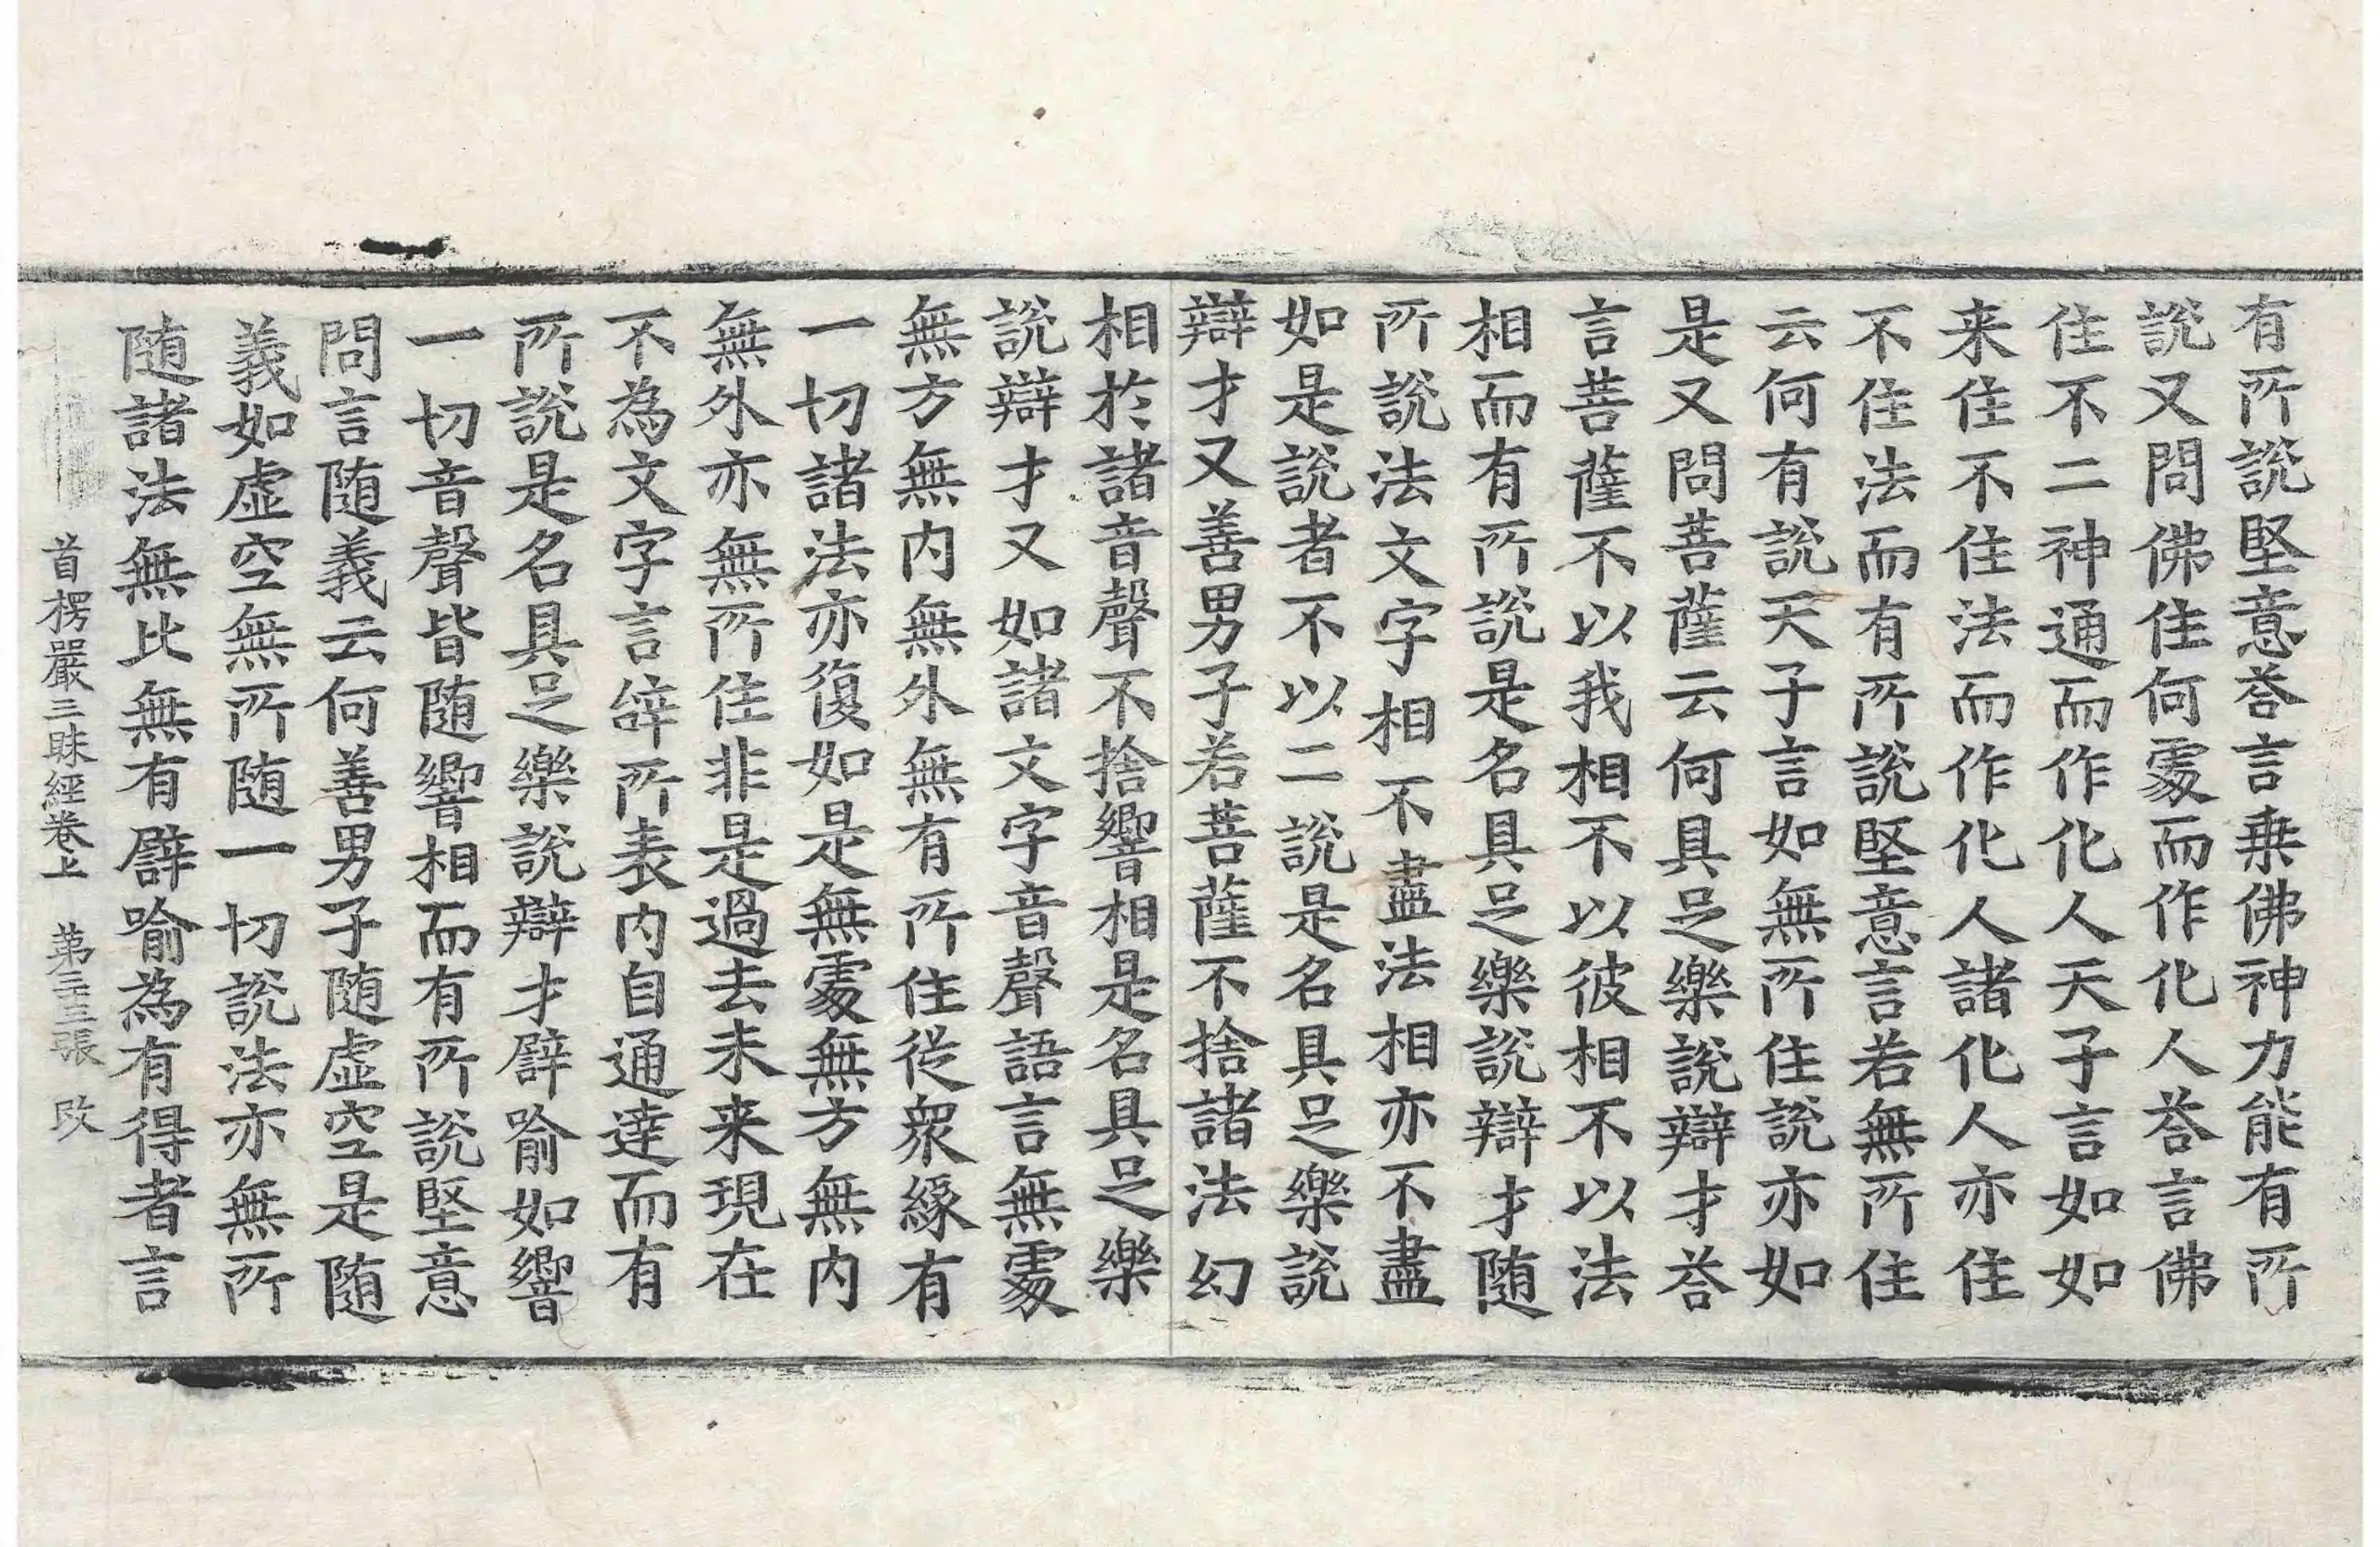 有所說堅意荅言乗佛神力能有所
說又問佛住何處而作化人荅言佛
住不二神通而作化人天子言如如
来住不住法而作化人諸化人亦住
不住法而有所說堅意言若無所住
云何有說天子言如無所住說亦如
是又問菩薩云何具足樂說辯才荅
言菩薩不以我相不以彼相不以法
相而有所說是名具足樂說辯才随
所說法文字相不盡法相亦不盡
如是說者不以二說是名具足樂說
辯才又善男子若菩薩不捨諸法幻
相於諸音聲不捨響相是名具足樂
說辯才又如諸文字音聲語言無處
無方無内無外無有所住従衆緣有
一切諸法亦復如是無處無方無内
無外亦無所住非是過去未来現在
不為文字言辝所表内自通達而有
所說是名具足樂說辯才譬喻如響
一切音聲皆随響相而有所說堅意
問言随義云何善男子随虚空是随
義如虚空無所随一切說法亦無所
随諸法無比無有譬喻為有得者言
首楞嚴三昧經卷上　第二十三張　改